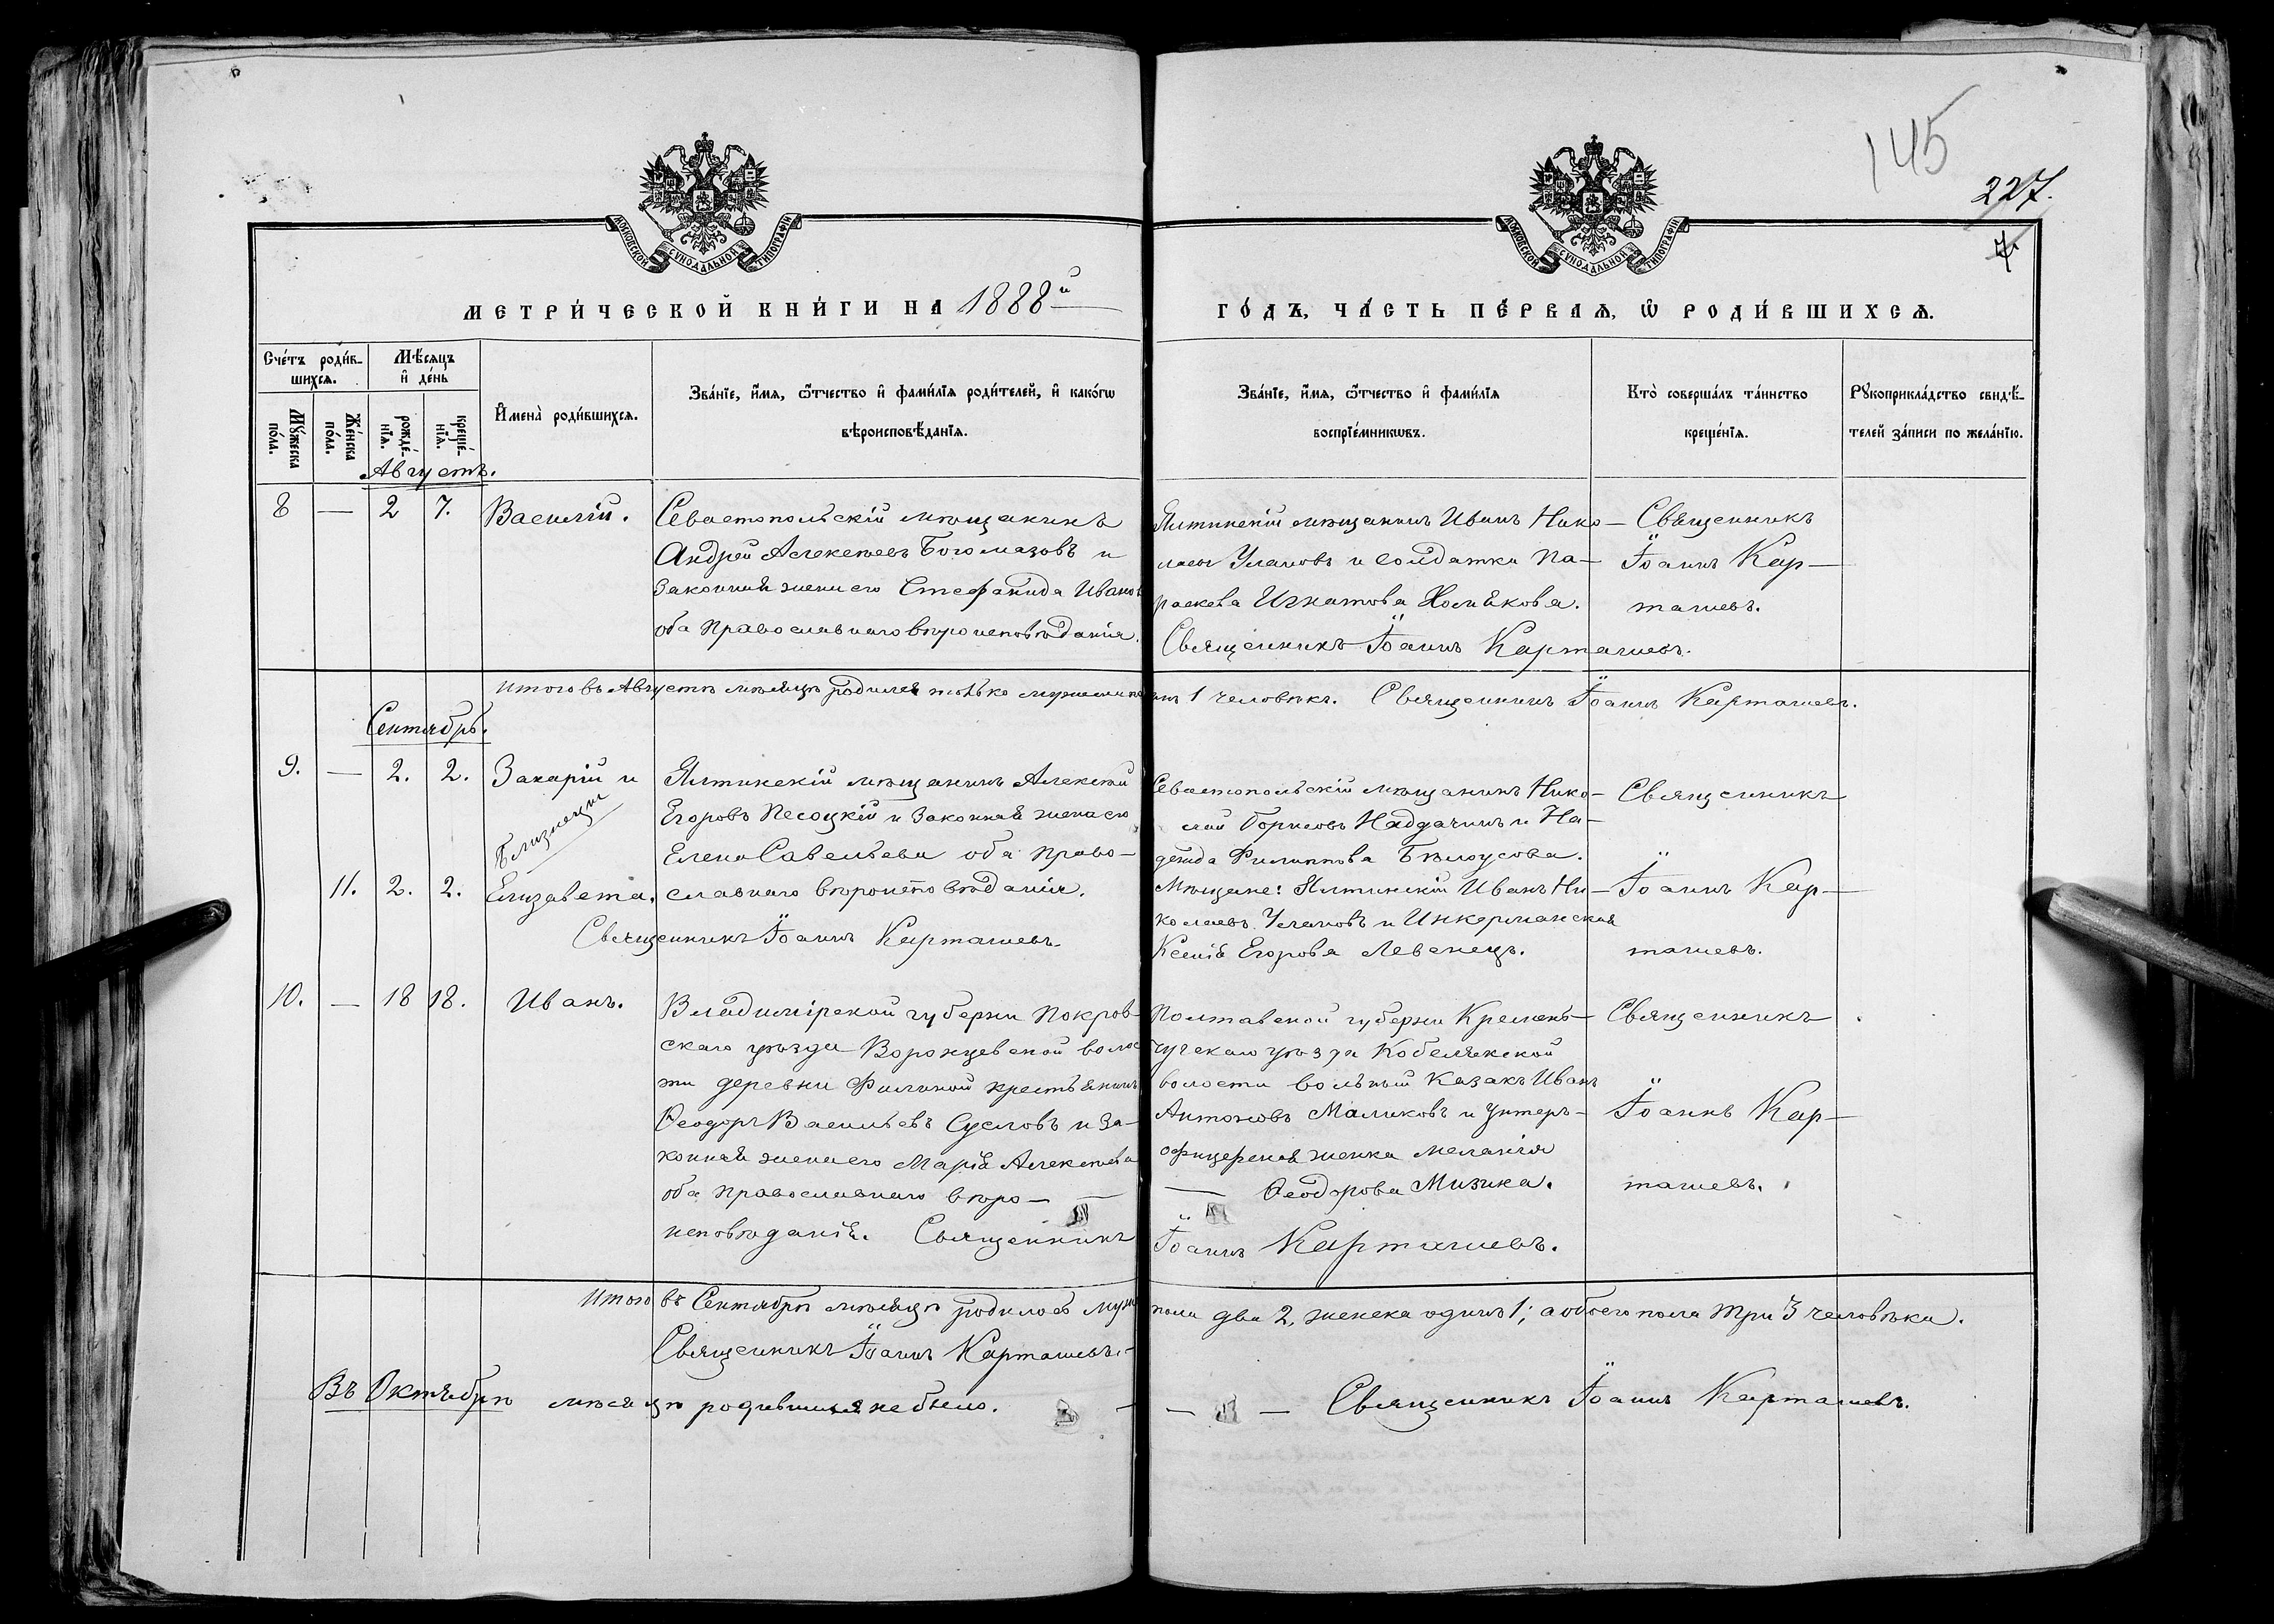 145
227.
7.
МОСКОВСКОЙ СѴНОДАЛЬНОЙ ТИПОГРАФІИ
МОСКОВСКОЙ СѴНОДАЛЬНОЙ ТИПОГРАФІИ
МЕТРИ́ЧЕСКОЙ КНИ́ГИ НА 1888й
ГО́ДЪ, ЧА́СТЬ ПЕ́РВАѦ, Ѽ РОДИ́ВШИХСѦ.
Сче́тъ роди́в-
шихсѧ.
Мѣ́сяцъ
и де́нь
Мꙋ́жеска
по́ла.
Же́нска
по́ла.
рожде́-
нїѧ.
креще́-
нїѧ.
Имена̀ роди́вшихсѧ.
Зва́нїе, и́мѧ, ѻ҆́тчество и҆ фами́лїѧ роди́телей, и҆ како́гѡ
вѣроисповѣ́данїѧ.
Зва́нїе, и́мѧ, ѻ҆́тчество и҆ фами́лїѧ
воспрїе́мникѡвъ.
Кто̀ соверша́лъ та́инство
креще́нїѧ.
Рꙋкоприкла́дство свидѣ́-
телей за́писи по жела́нїю.
Августъ.
8 — 2 7. Василій. Севастопольскій мѣщанинъ
Андрей Алексѣевъ Богомазовъ и
законная жена его Стефанида Иванов
оба православнаго вѣроисповѣданія.
Ялтинскій мѣщанинъ Иванъ Нико-
лаевъ Улановъ и солдатка Па-
раскева Игнатова Хомякова.
Священникъ Іоаннъ Карташевъ.
Священникъ
Іоаннъ Кар-
ташевъ.
Итого въ Августѣ мѣсяцѣ родился только мужеска 1 человѣкъ. Священникъ Іоаннъ Карташевъ.
Сентябрь.
9. — 2. 2. Захарій и
Близнецы
11. 2. 2. Елизавета.
Ялтинскій мѣщанинъ Алексѣй
Егоровъ Песоцкій и законная жена его
Елена Савельева оба право-
славнаго вѣроисповѣданія.
Священникъ Іоаннъ Карташевъ.
Севастопольскій мѣщанинъ Нико-
лай Борисовъ и На-
дежда Филиппова Бѣлоусова.
Мѣщане: Ялтинскій Иванъ Ни-
колаевъ Улановъ и Инкерманская
Ксенія Егорова Левенецъ.
Священникъ
Іоаннъ Кар-
ташевъ.
10. — 18 18. Иванъ.
Владимірской губерни Покров-
скаго уѣзда Воронцовской волос
ти деревни Филиной крестьянинъ
Ѳеодоръ Васильевъ Сусловъ и за-
конная жена его Марія Алексѣева
оба православнаго вѣро-
исповѣданія. Священникъ
Полтавской губерни Кремен-
чугскаго уѣзда Кобелякской
волости вольный казакъ Иванъ
Антоновъ Маликовъ и унтеръ-
офицерская женка Меланія
Ѳеодорова Музика.
Іоаннъ Карташевъ.
Священникъ
Іоаннъ Кар-
ташевъ.
Итого въ Сентябрѣ мѣсяцѣ родилось муж пола два 2, женска одинъ 1; а обоего пола три 3 человѣка.
Священникъ Іоаннъ Карташевъ.
Въ Октябрѣ мѣсяцѣ родившихся не было. — — Священникъ Іоаннъ Карташевъ.